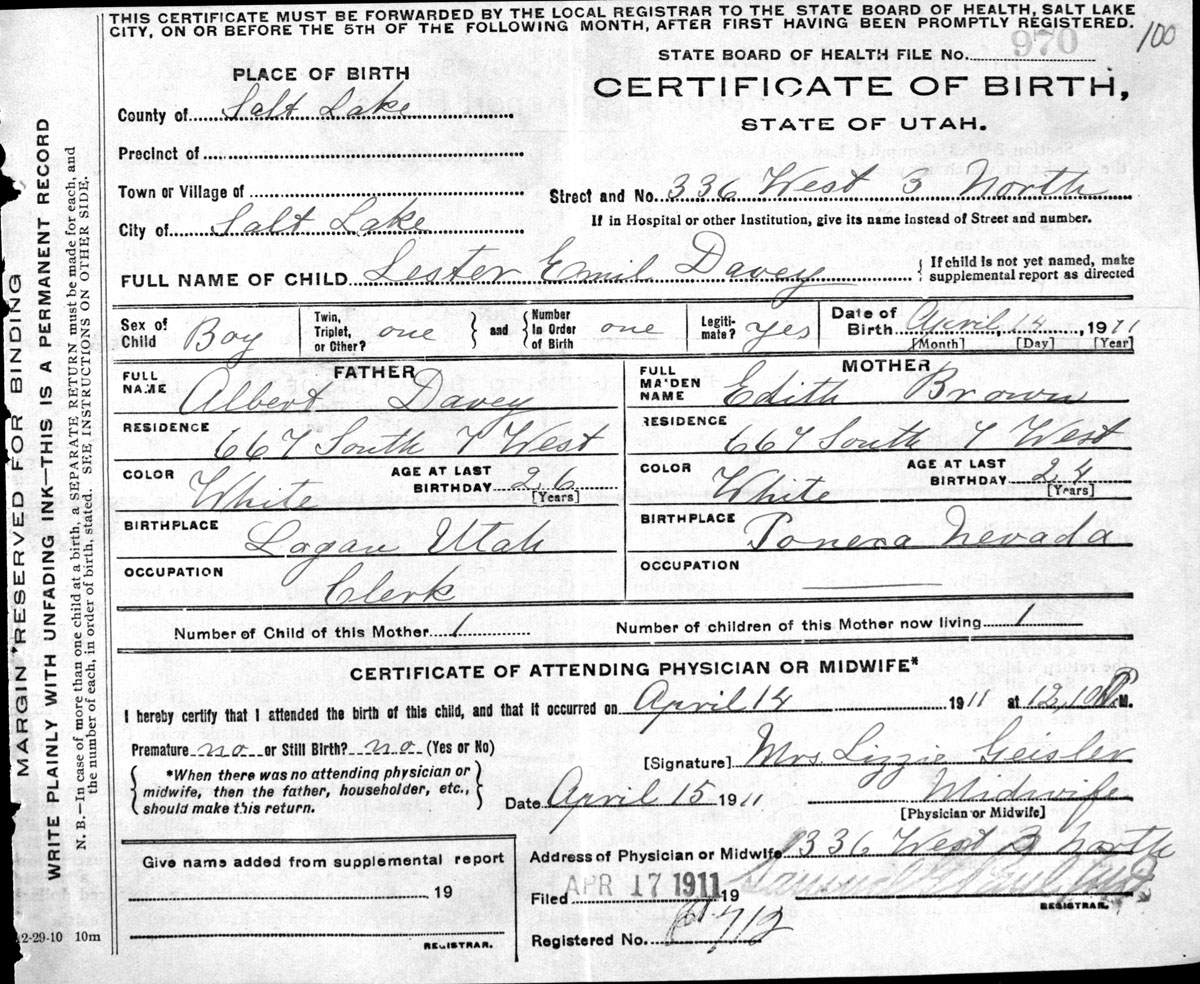 THIS CERTIFICATE MUST BE FORWARDED BY THE LOCAL REGISTRAR TO THE STATE BOARD OF HEALTH, SALT LAKE
CITY, ON OR BEFORE THE 5TH OF THE FOLLOWING MONTH, AFTER FIRST HAVING BEEN PROMPTLY REGISTERED.
100
STATE BOARD OF HEALTH FILE No. 970
PLACE OF BIRTH
CERTIFICATE OF BIRTH,
STATE OF UTAH.
County of Salt Lake
Precinct of
Town or Village of
Street and No. 336 West 3 North
City of Salt Lake
If in Hospital or other Institution, give its name instead of Street and number.
FULL NAME OF CHILD Lester Emil Davey
If child is not yet named, make
supplemental report as directed
Sex of Child Boy
Twin, Triplet, or Other? one
and
Number In Order of Birth one
Legiti-mate? yes
Date of Birth April 14, 1911
[Month] [Day] [Year]
FATHER
MOTHER
FULL NAME Albert Davey
FULL MAIDEN NAME Edith Brown
RESIDENCE 667 South 7 West
RESIDENCE 667 South 7 West
COLOR White
AGE AT LAST BIRTHDAY 26
[Years]
COLOR White
AGE AT LAST BIRTHDAY 24
[Years]
BIRTHPLACE Logan Utah
BIRTHPLACE Nevada
OCCUPATION Clerk
OCCUPATION
Number of Child of this Mother 1
Number of children of this Mother now living 1
CERTIFICATE OF ATTENDING PHYSICIAN OR MIDWIFE*
I hereby certify that I attended the birth of this child, and that it occurred on April 14 1911 at 12,10 P. M.
Premature no or Still Birth? no (Yes or No)
[Signature] Mrs. Lizzie Geisler
*When there was no attending physician or
midwife, then the father, householder, etc.,
should make this return.
Date April 15 1911
Midwife
[Physician or Midwife]
Give name added from supplemental report
19
REGISTRAR.
Address of Physician or Midwife 336 West 3 North
Filed APR 17 1911 19
Samuel
REGISTRAR.
Registered No. 712
12-29-10 10m
MARGIN RESERVED FOR BINDING
WRITE PLAINLY WITH UNFADING INK—THIS IS A PERMANENT RECORD
N. B.—In case of more than one child at a birth, a SEPARATE RETURN must be made for each, and
the number of each, in order of birth, stated. SEE INSTRUCTIONS ON OTHER SIDE.